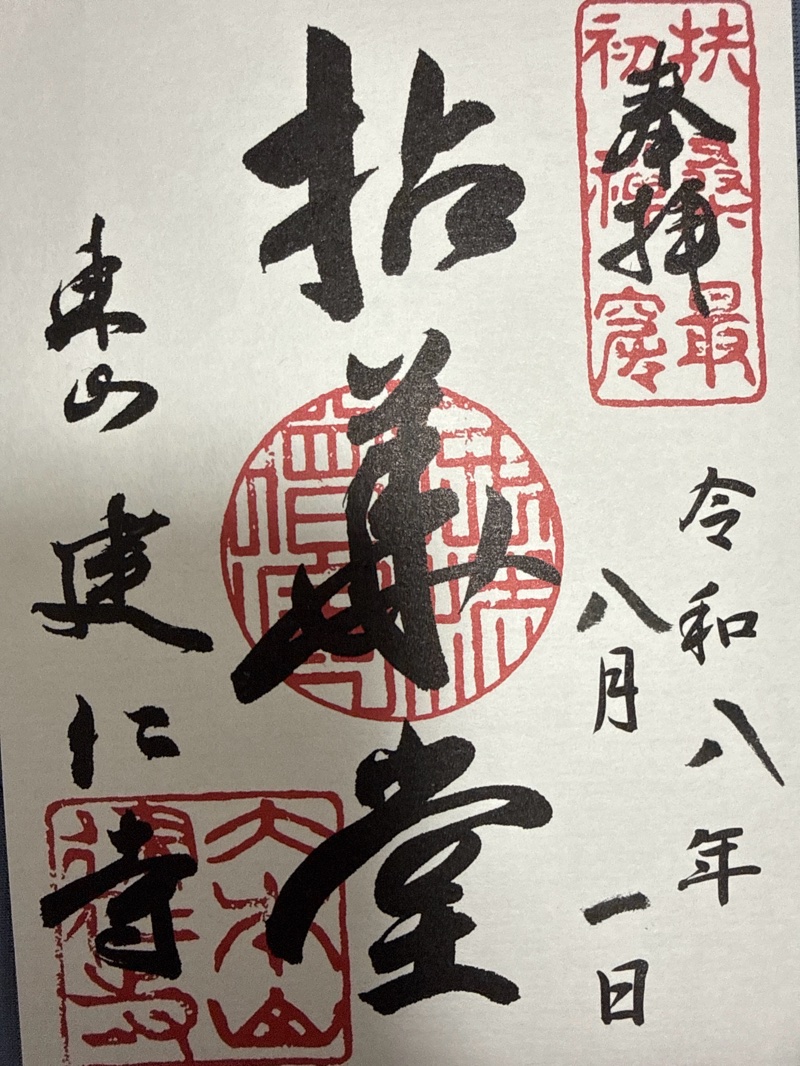 奉拝
扶桑最
初禅窟
令和八年
八月一日
拈華堂
東山建仁寺
大本山
建仁寺